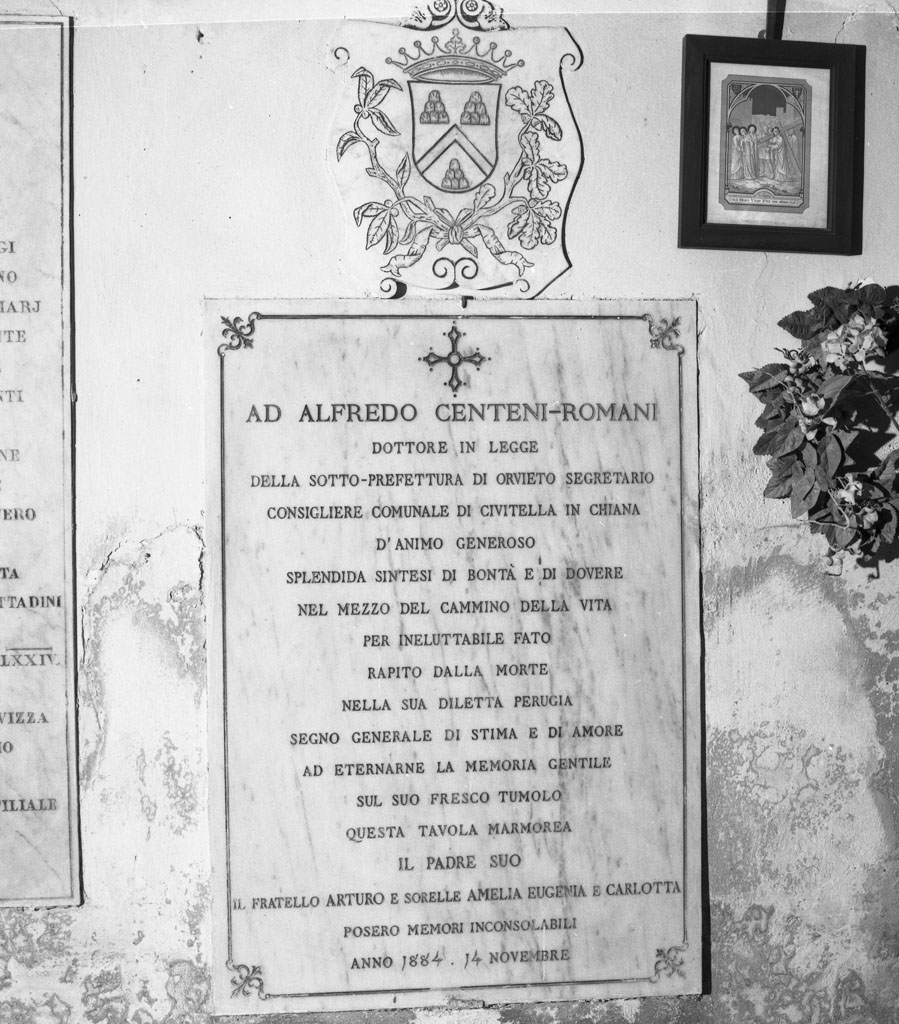 AD ALFREDO CENTENI-ROMANI
DOTTORE IN LEGGE
DELLA SOTTO-PREFETTURA DI ORVIETO SEGRETARIO
CONSIGLIERE COMUNALE DI CIVITELLA IN CHIANA
D'ANIMO GENEROSO
SPLENDIDA SINTESI DI BONTÀ E DI DOVERE
NEL MEZZO DEL CAMMINO DELLA VITA
PER INELUTTABILE FATO
RAPITO DALLA MORTE
NELLA SUA DILETTA PERUGIA
SEGNO GENERALE DI STIMA E DI AMORE
AD ETERNARNE LA MEMORIA GENTILE
SUL SUO FRESCO TUMOLO
QUESTA TAVOLA MARMOREA
IL PADRE SUO
IL FRATELLO ARTURO E SORELLE AMELIA EUGENIA E CARLOTTA
POSERO MEMORI INCONSOLABILI
ANNO 1884 . 14 NOVEMBRE
GI
NO
MARJ
TE
NTI
NE
VERO
TA
TTADINI
LXXIV.
VIZZA
IO
FILIALE